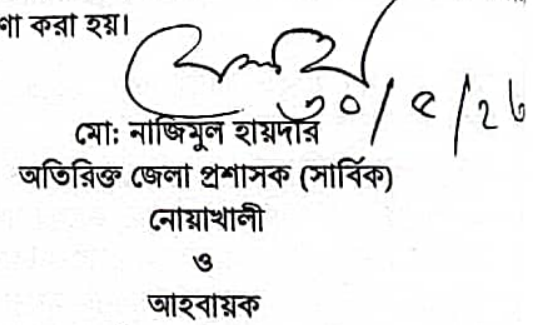 ণা করা হয়।
৩০/৫/২৬
মো: নাজিমুল হায়দার
অতিরিক্ত জেলা প্রশাসক (সার্বিক)
নোয়াখালী
ও
আহবায়ক